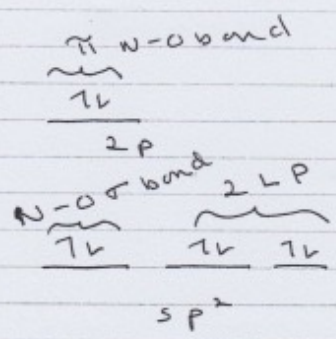 π N-O bond
1L
2p
N-O σ bond 2 LP
1L 1L 1L
sp²